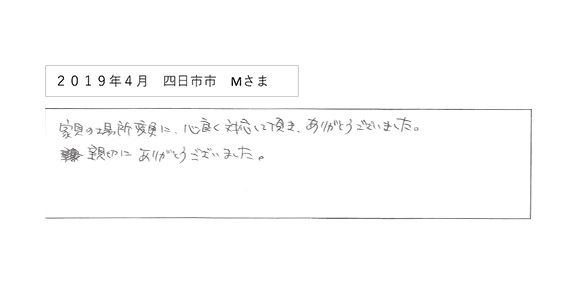 2019年4月 四日市市 Mさま
家具の場所変更に、心良く対応して頂き、ありがとうございました。
親切にありがとうございました。